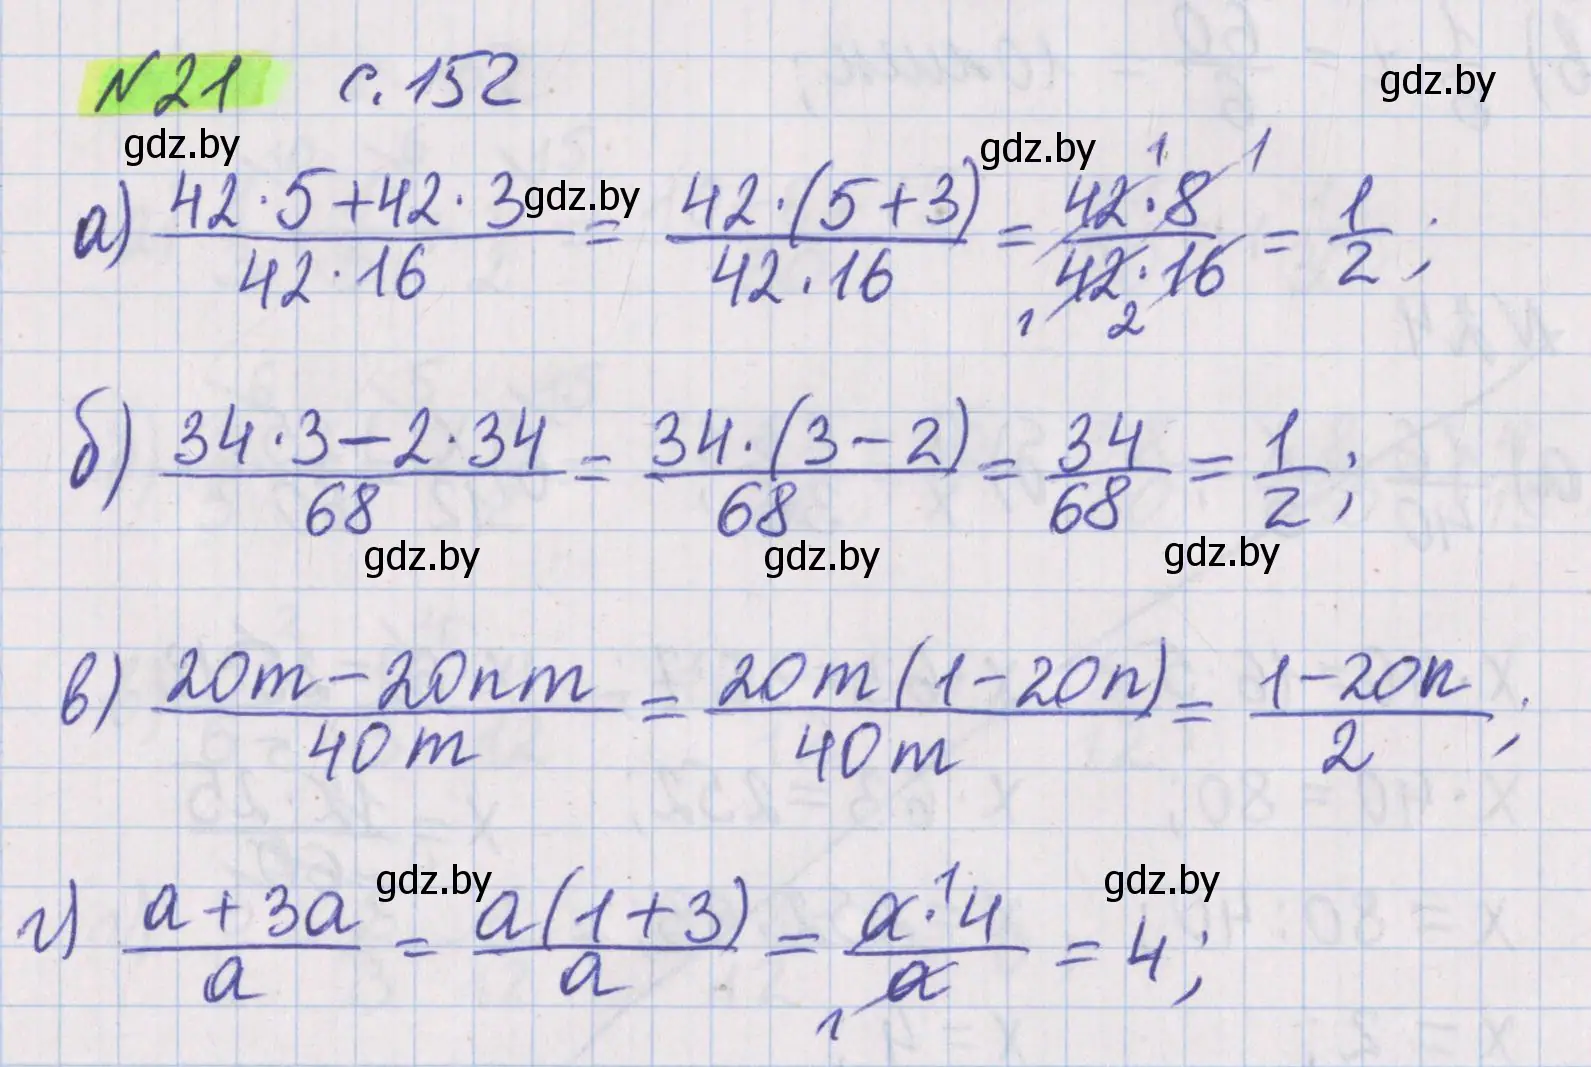 №21 с.152
gdz.by
gdz.by gdz.by
а) (42·5+42·3)/(42·16) = (42·(5+3))/(42·16) = (42·8)/(42·16) = 1/2;
gdz.by
1 1
1 2
б) (34·3-2·34)/68 = (34·(3-2))/68 = 34/68 = 1/2;
gdz.by gdz.by gdz.by
в) (20m-20nm)/(40m) = (20m(1-20n))/(40m) = (1-20n)/2;
gdz.by gdz.by
г) (a+3a)/a = (a(1+3))/a = (a·4)/a = 4;
1
1